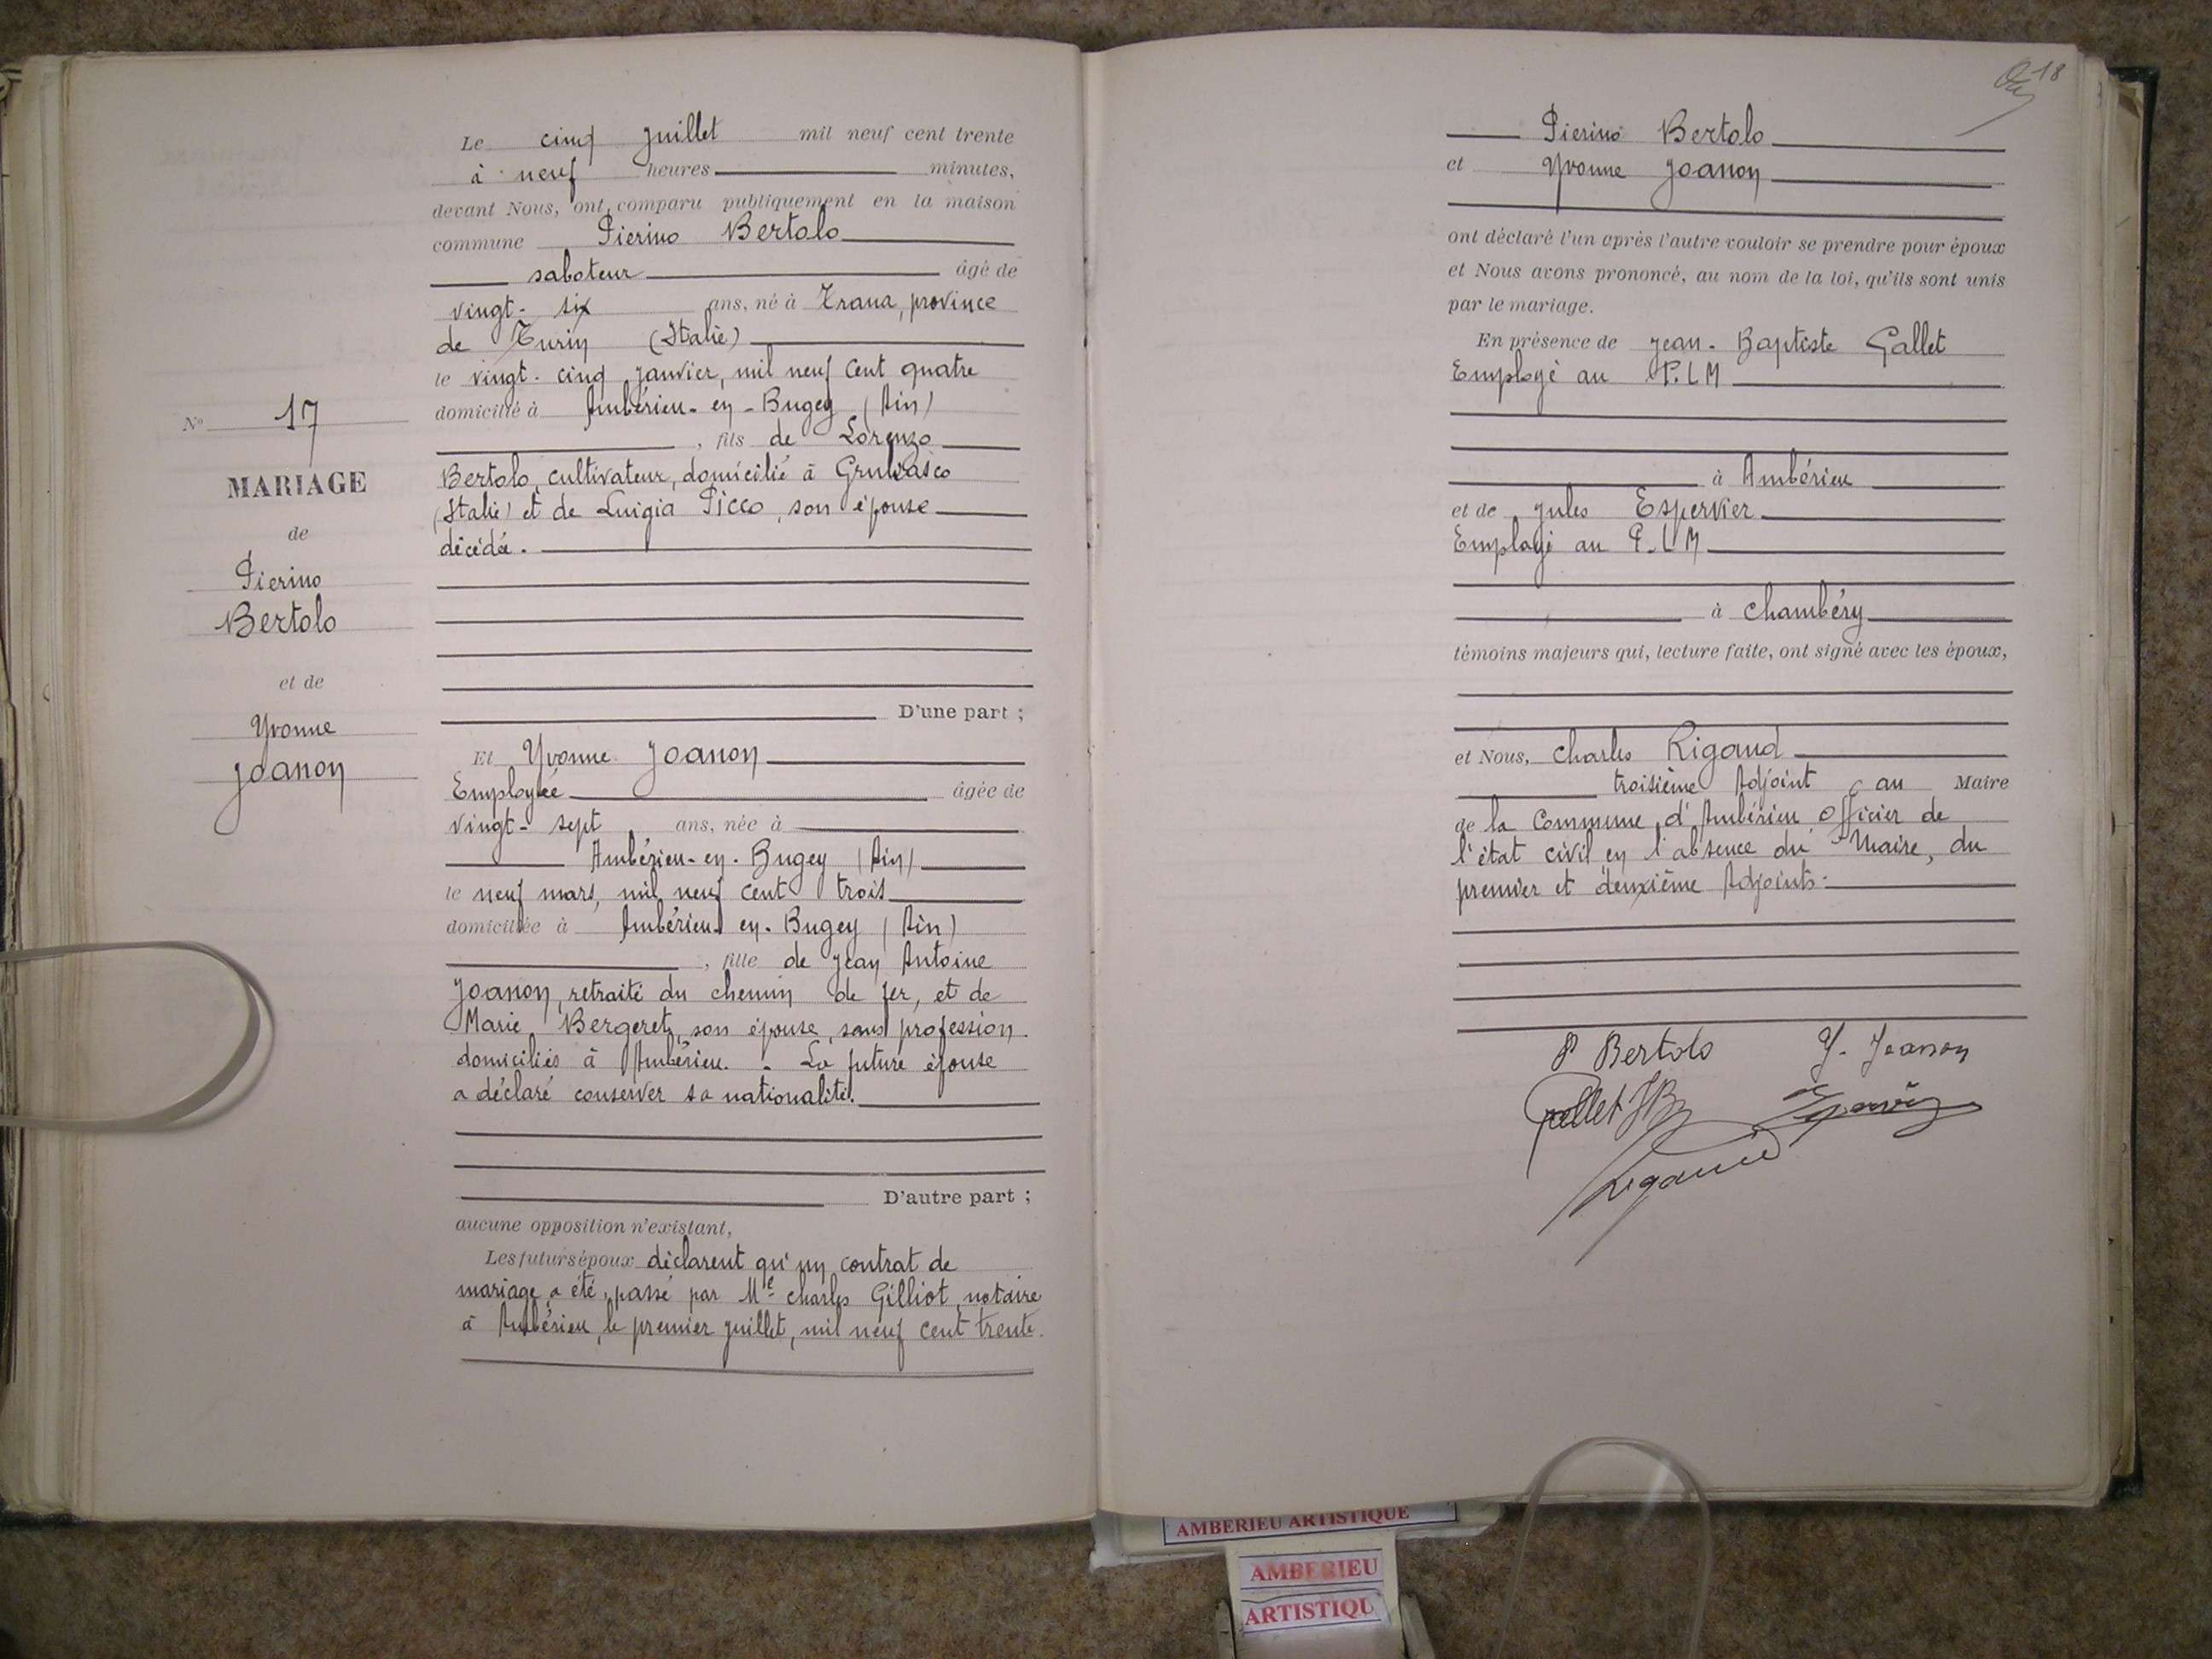 N° 17
MARIAGE
de
Pierino
Bertolo
et de
Yvonne
Joanon
Le cinq Juillet mil neuf cent trente
à neuf heures minutes,
devant Nous, ont comparu publiquement en la maison
commune Pierino Bertolo
saboteur âgé de
vingt-six ans, né à Trana, province
de Turin (Italie)
le vingt-cinq Janvier, mil neuf cent quatre
domicilié à Ambérieu-en-Bugey (Ain)
, fils de Lorenzo
Bertolo, cultivateur, domicilié à
(Italie) et de Luigia Picco, son épouse
décédée.
D'une part ;
Et Yvonne Joanon
Employée âgée de
vingt-sept ans, née à
Ambérieu-en-Bugey (Ain)
le neuf mars, mil neuf cent trois
domiciliée à Ambérieu-en-Bugey (Ain)
, fille de Jean Antoine
Joanon, retraité du chemin de fer, et de
Marie Bergeret, son épouse, sans profession
domiciliés à Ambérieu. - La future épouse
a déclaré conserver sa nationalité.
D'autre part ;
aucune opposition n'existant,
Les futurs époux déclarent qu'un contrat de
mariage a été passé par Me Charles Gilliot, notaire
à Ambérieu, le premier juillet, mil neuf cent trente.
18
Pierino Bertolo
et Yvonne Joanon
ont déclaré l'un après l'autre vouloir se prendre pour époux
et Nous avons prononcé, au nom de la loi, qu'ils sont unis
par le mariage.
En présence de Jean-Baptiste Gallet
Employé au P.L.M
à Ambérieu
et de Jules Espervier
Employé au P.L.M
à Chambéry
témoins majeurs qui, lecture faite, ont signé avec les époux,
et Nous, Charles Rigaud
troisième Adjoint au Maire
de la Commune d'Ambérieu Officier de
l'état civil en l'absence du Maire, du
premier et deuxième Adjoints.
P Bertolo Y. Joanon
Gallet JB
Rigaud
AMBERIEU ARTISTIQUE
AMBERIEU
ARTISTIQU